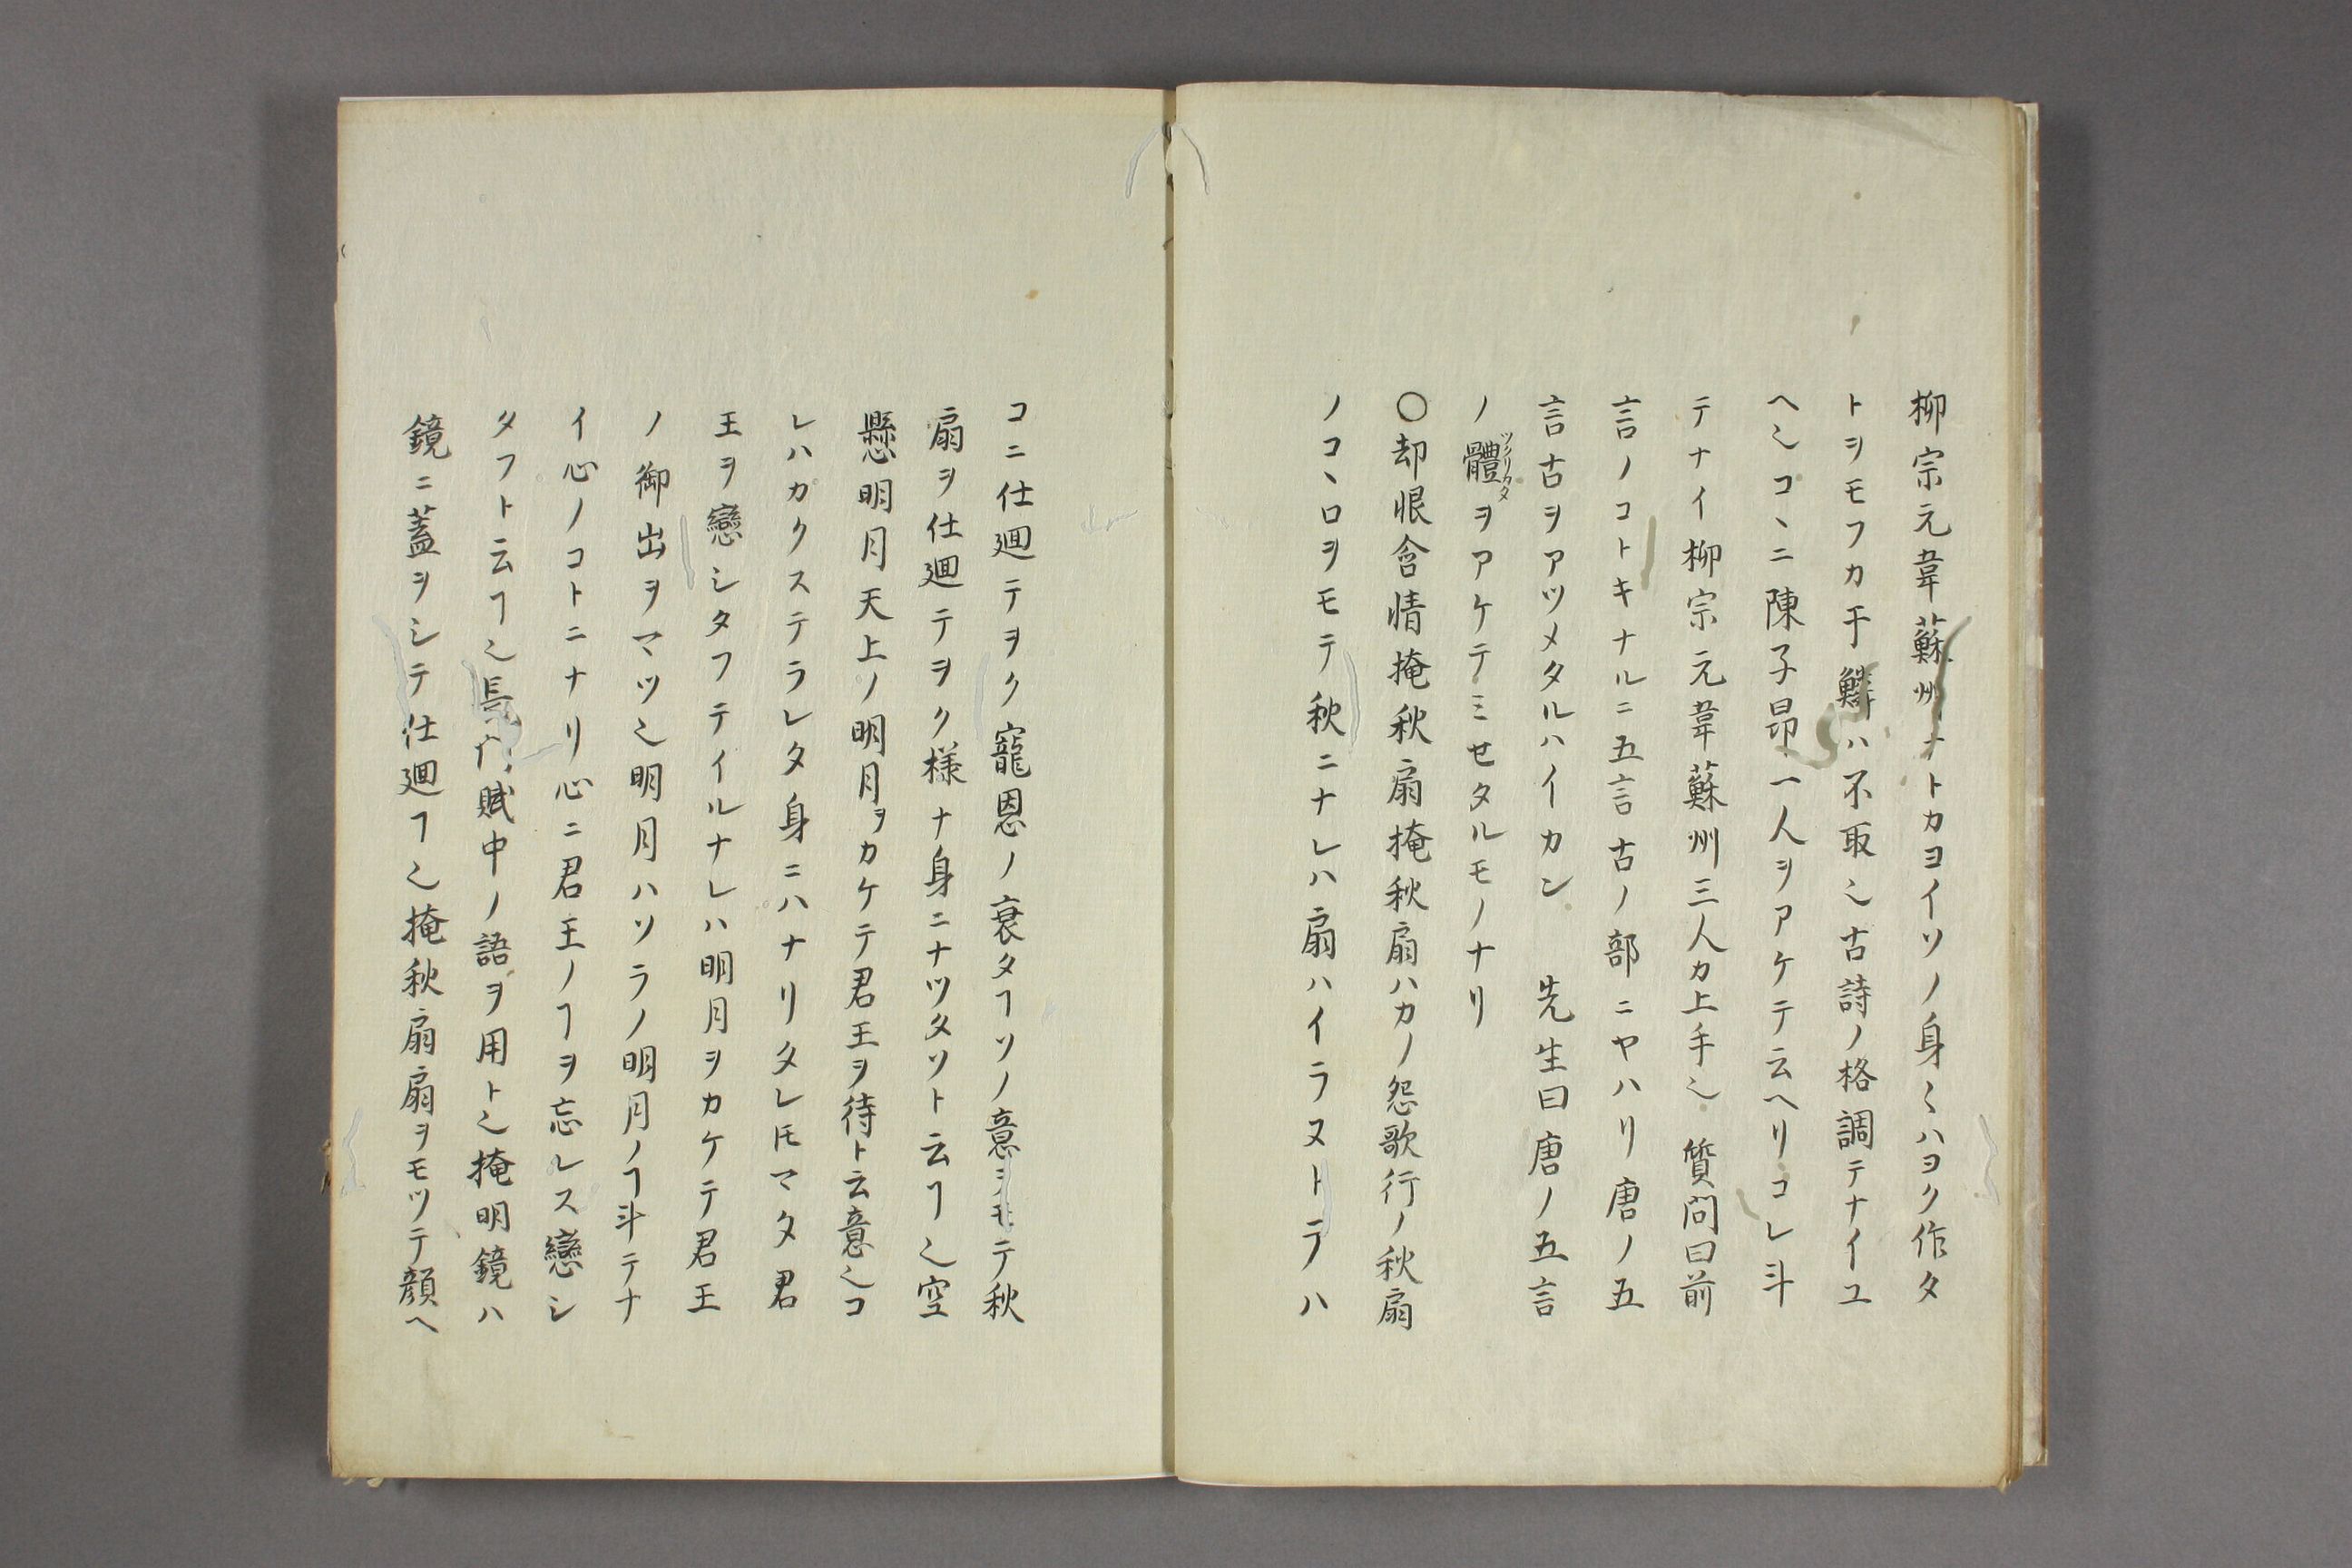 柳宗元韋蘇州ナトカヨイソノ身〻ハヨク作タ
トヲモフカ于鱗ハ不取〆古詩ノ格調テナイユ
ヘ〆コヽニ陳子昂一人ヲアケテ云ヘリコレ斗
テナイ柳宗元韋蘇州三人カ上手〆質問曰前
言ノコトキナルニ五言古ノ部ニヤハリ唐ノ五
言古ヲアツメタルハイカン　先生曰唐ノ五言
ノ體ヲアケテミセタルモノナリ
ツクリカタ
〇却恨含情掩秋扇掩秋扇ハカノ怨歌行ノ秋扇
ノコヽロヲモテ秋ニナレハ扇ハイラヌトテハ
コニ仕廻テヲク寵恩ノ衰タヿソノ意ヲモテ秋
扇ヲ仕廻テヲク様ナ身ニナツタソト云ヿ〆空
懸明月天上ノ明月ヲカケテ君王ヲ待ト云意〆コ
レハカクステラレタ身ニハナリタレ𪜈マタ君
王ヲ戀シタフテイルナレハ明月ヲカケテ君王
ノ御出ヲマツ〆明月ハソラノ明月ノヿ斗テナ
イ心ノコトニナリ心ニ君王ノヿヲ忘レス戀シ
タフト云ヿ〆長門賦中ノ語ヲ用ト〆掩明鏡ハ
鏡ニ蓋ヲシテ仕廻ヿ〆掩秋扇扇ヲモツテ顔ヘ